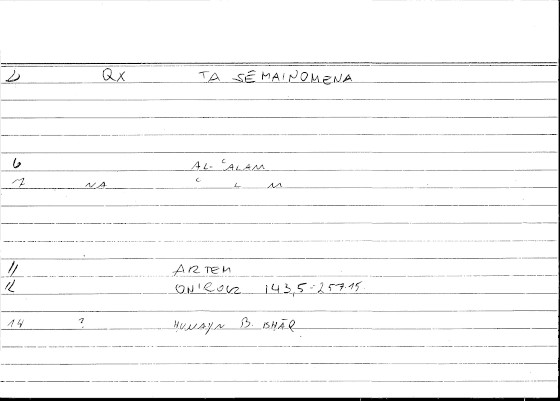 2 QX TA SEMAINOMENA
6 AL-ʿALAM
7 NA ʿ L M
11 ARTEM
12 ONIROCR 143,5-257.15
14 ? ḤUNAYN B. ISḤĀQ